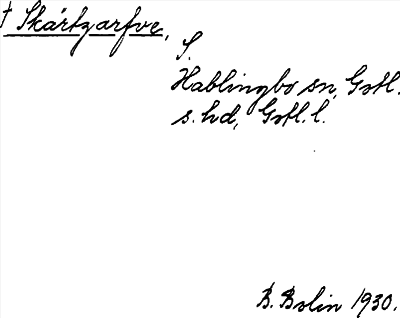 † Skärtzarfve,
S.
Hablingbo sn, Gotl.
s. hd, Gotl. l.
B. Bolin 1930.